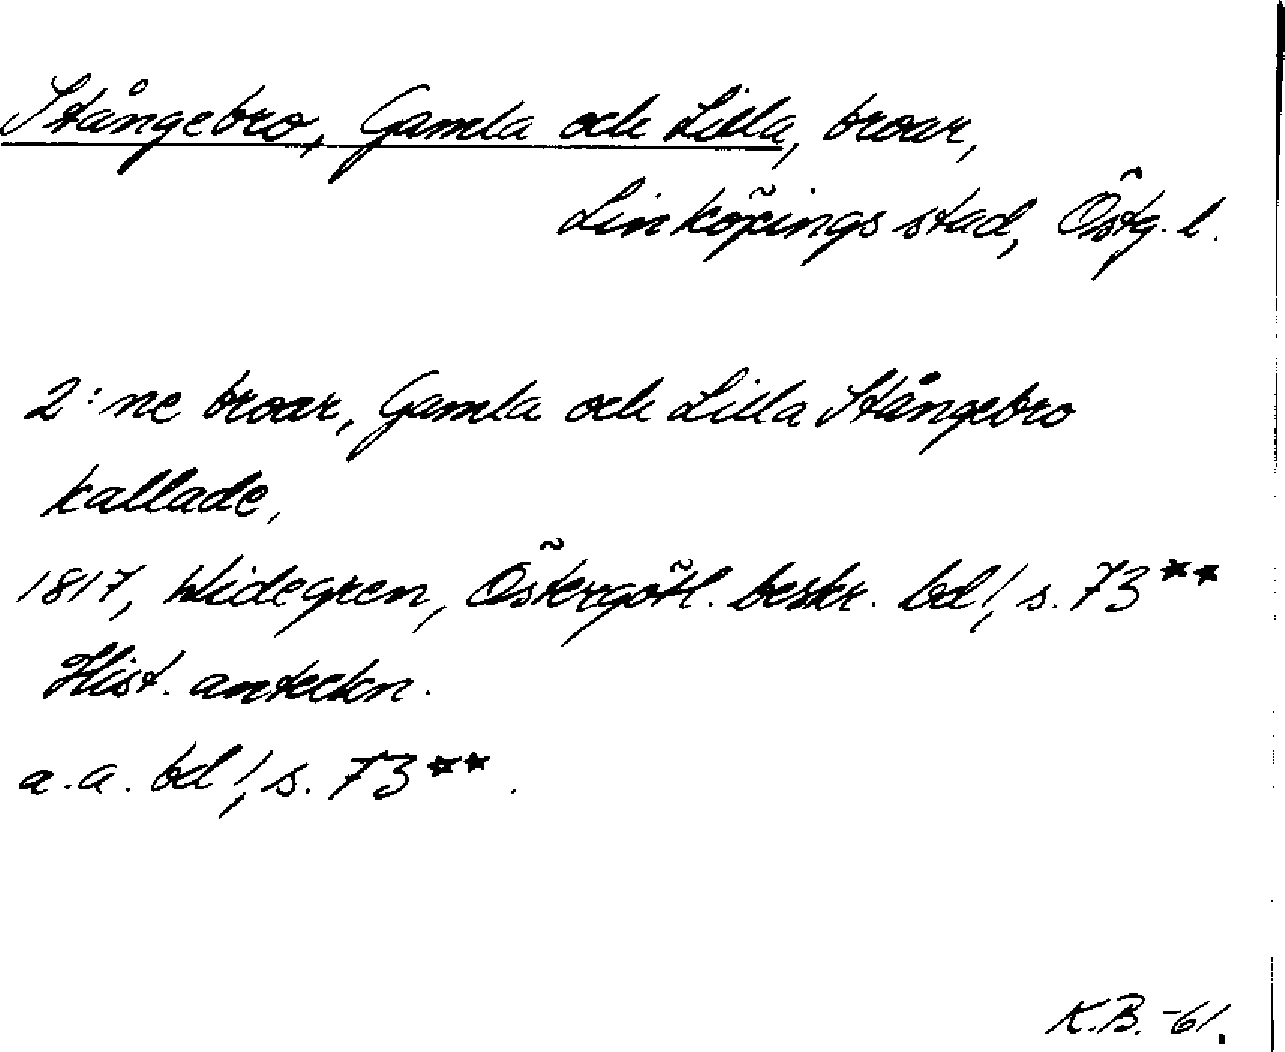 Stångebro, Gamla och Lilla, broar,
Linköpings stad, Östg. l.
2:ne broar, Gamla och Lilla Stångebro
kallade,
1817, Widegren, Östergötl. beskr. bd 1, s. 73**
Hist. anteckn.
a.a. bd 1, s. 73**.
K.B. -61.